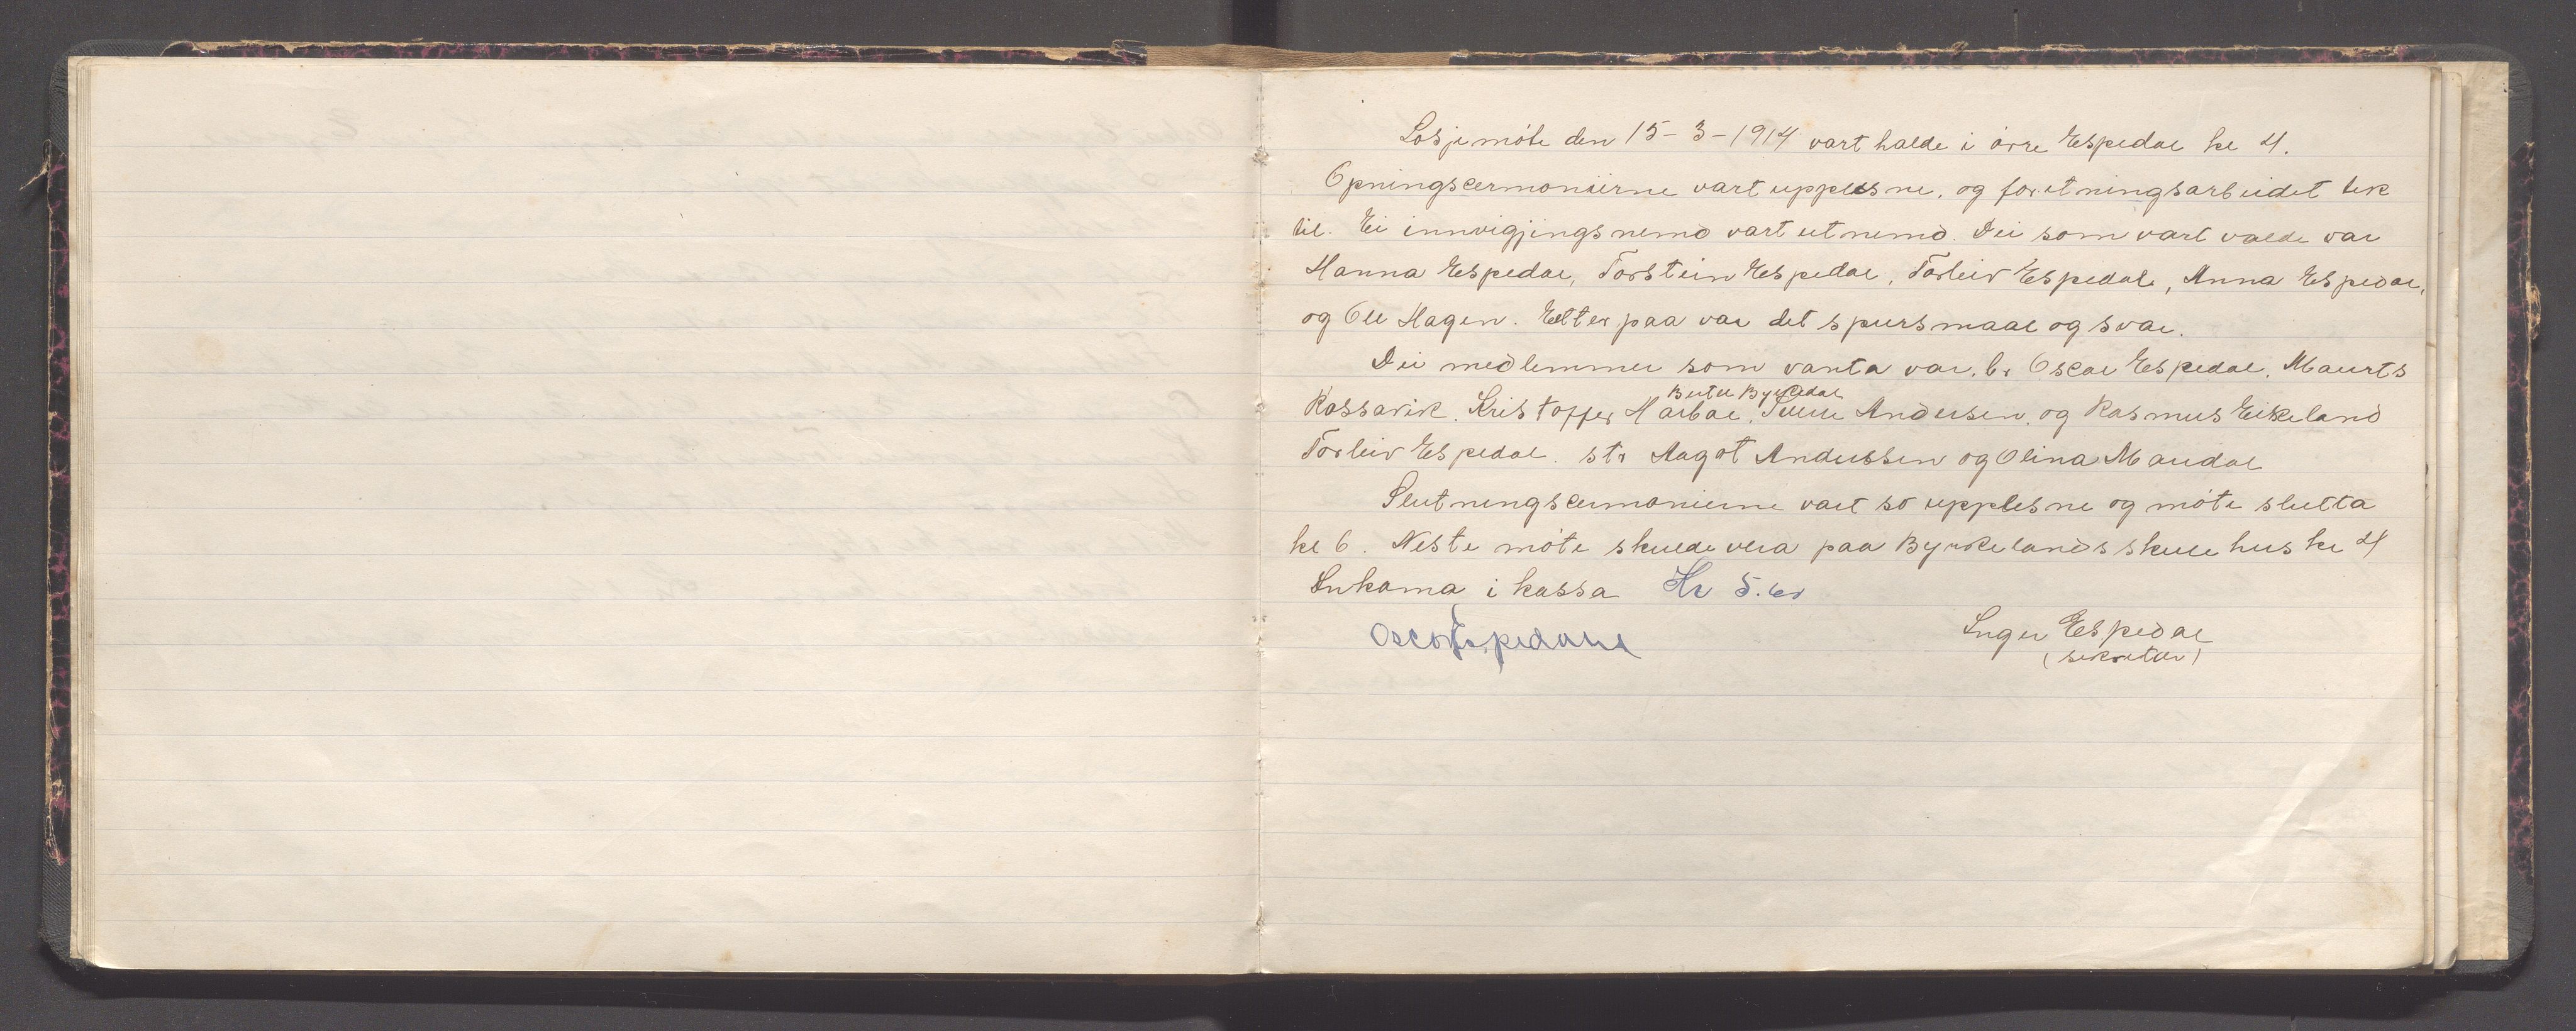 Losjemöte den 15-3-1914 vart halde i övre Espedal kl 4.
Opningscermoniirne vart upplesne, og foretningsarbeidet tek
til. Ei innvigjingsnemd vart utnemd. Dei som vart valde var
Hanna Espedal, Torstein Espedal, Torleiv Espedal, Anna Espedal,
og Ole Hagen. Etter paa var det spursmaal og svar.
Dei medlemmer som vanta var. br Oscar Espedal. Maurts
Bertel Byrkedal
Rossavik. Kristoffer Maribal. Andersen. og Rasmus Eikeland
Torleiv Espedal. str Aagot Anderssen og Olina Maudal
Slutningscermonierne vart so upplesne og möte slutta
kl 6. Neste möte skulde vera paa Byrkelands skulehus kl 4
Innkoma i kassa Kr 5.60
Oscar Espedal
Inger Espedal
(sekretær)